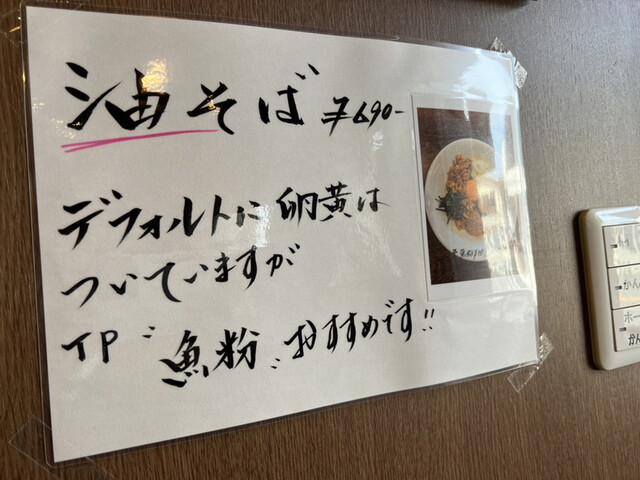 油そば ¥690-
デフォルトに卵黄は
ついていますが
TP〝魚粉〟おすすめです!!
かん
ホー
かん